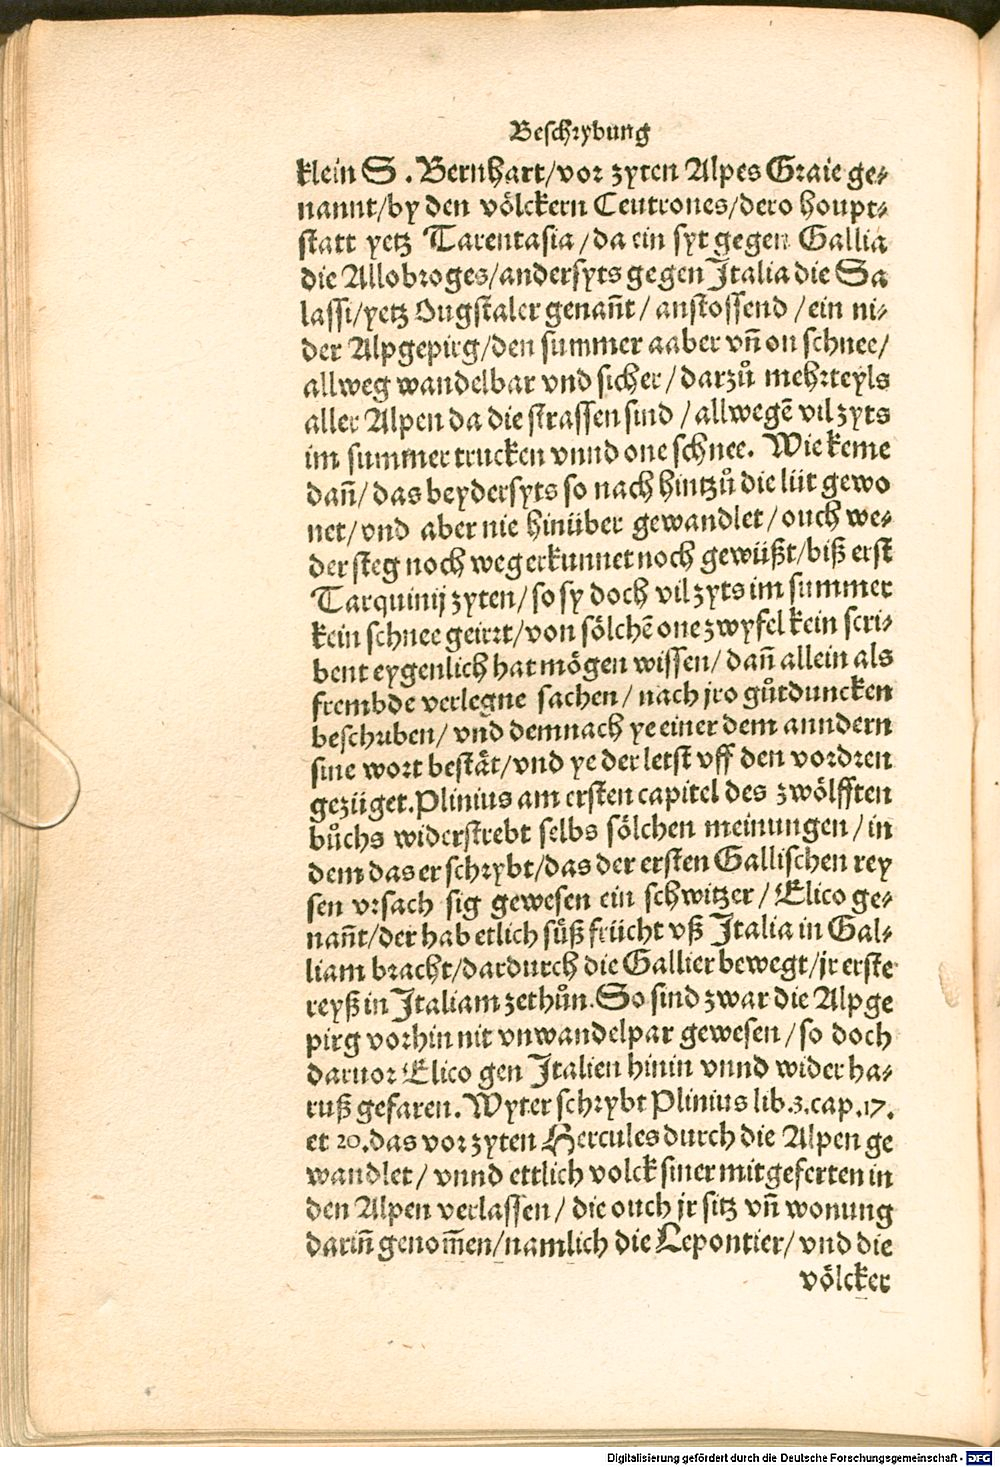 Beschrybung
klein S. Bernhart/vor zyten Alpes Graie ge⸗
nannt/by den völckern Ceutrones/dero houpt⸗
statt yetz Tarentasia/da ein syt gegen Gallia
die Allobroges/andersyts gegen Italia die Sa
lassi/yetz Ougstaler genañt/anstossend/ein ni⸗
der Alpgepirg/den summer aaber vñ on schnee/
allweg wandelbar vnd sicher/darzů mehrteyls
aller Alpen da die strassen sind/allwegẽ vil zyts
im summer trucken vnnd one schnee. Wie keme
dañ/das beydersyts so nach hintzů die lüt gewo
net/vnd aber nie hinüber gewandlet/ouch we⸗
der steg noch weg erkunnet noch gewüßt/biß erst
Tarquinij zyten/so sy doch vil zyts im summer
kein schnee geirrt/von sölchẽ one zwyfel kein scri⸗
bent eygenlich hat mögen wissen/dañ allein als
frembde verlegne sachen/nach jro gůtduncken
beschriben/vnd demnach ye einer dem anndern
sine wort bestät/vnd ye der letst vff den vordren
gezüget. Plinius am ersten capitel des zwölfften
bůchs widerstrebt selbs sölchen meinungen/in
dem das er schrybt/das der ersten Gallischen rey
sen vrsach sig gewesen ein schwitzer/Elico ge⸗
nañt/der hab etlich süß frücht vß Italia in Gal⸗
liam bracht/dardurch die Gallier bewegt/jr erste
reyß in Italiam zethůn. So sind zwar die Alpge
pirg vorhin nit vnwandelpar gewesen/so doch
daruor Elico gen Italien hinin vnnd wider ha⸗
ruß gefaren. Wyter schrybt Plinius lib.3.cap.17.
et 20.das vor zyten Hercules durch die Alpen ge
wandlet/vnnd ettlich volck siner mitgeferten in
den Alpen verlassen/die ouch jr sitz vñ wonung
dariñ genom̃en/namlich die Lepontier/vnd die
völcker
Digitalisierung gefördert durch die Deutsche Forschungsgemeinschaft - DFG